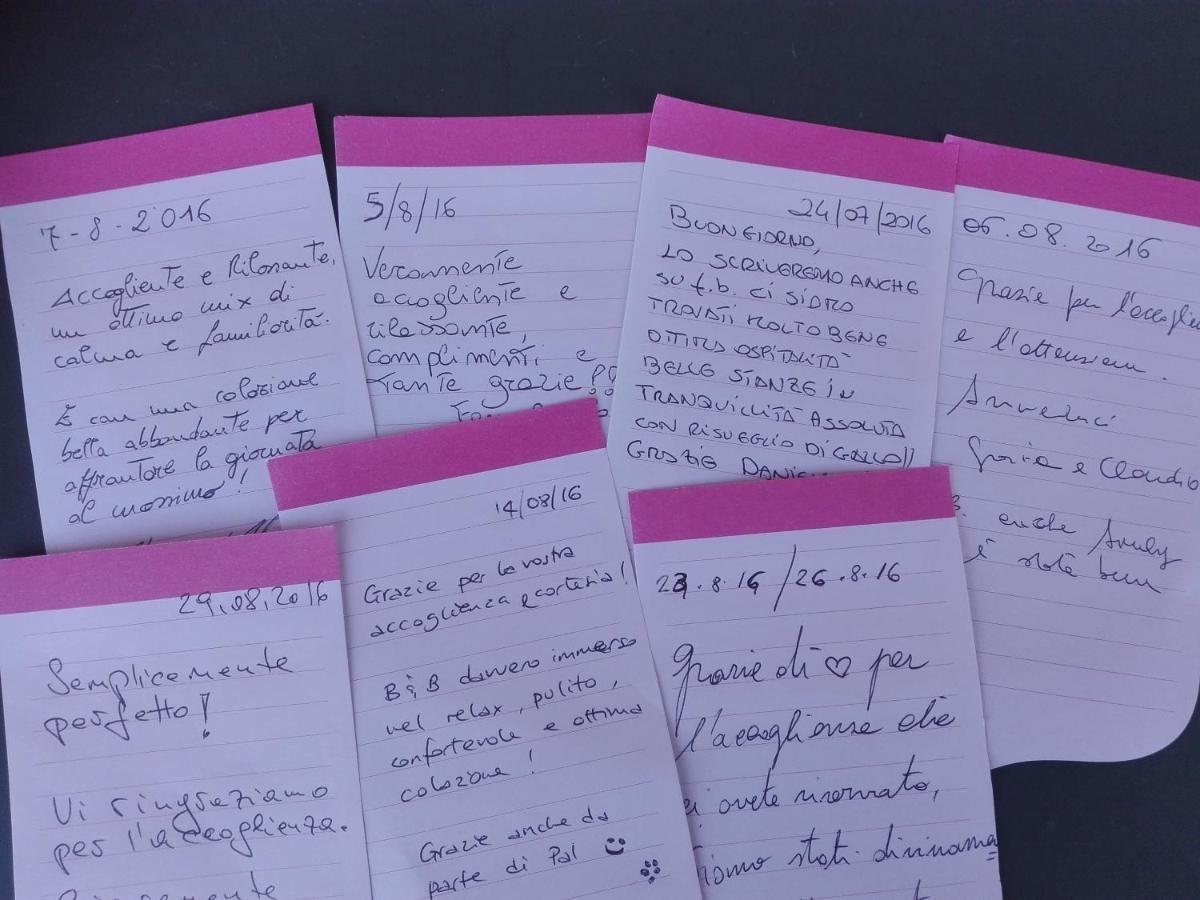 7-8-2016
Accogliente e Rilassante,
un ottimo mix di
calma e familiarità.
E con una colazione
bella abbondante per
affrontare la giornata
al massimo!
5/8/16
Veramente
accogliente e
rilassante,
complimenti e
tante grazie!
24/07/2016
BUONGIORNO,
LO SCRIVEREMO ANCHE
SU f.b. CI SIAMO
TROVATI MOLTO BENE
OTTIMA OSPITALITÀ
BELLE STANZE IN
TRANQUILLITÀ ASSOLUTA
CON RISVEGLIO DI GALLO!!
GRAZIE DANIE
06.08.2016
Grazie per l'accoglien
e l'attenzion.
Arrivederci
e Claudio
anche
è stata bene
29.08.2016
Semplicemente
perfetto!
Vi ringraziamo
per l'accoglienza.
14/08/16
Grazie per la vostra
accoglienza e cortesia!
B&B davvero immerso
nel relax, pulito,
confortevole e ottima
colazione!
Grazie anche da
parte di Pal
23.8.16/26.8.16
Grazie di ♡ per
l'accoglienza che
ci avete riservato,
siamo stati divinama